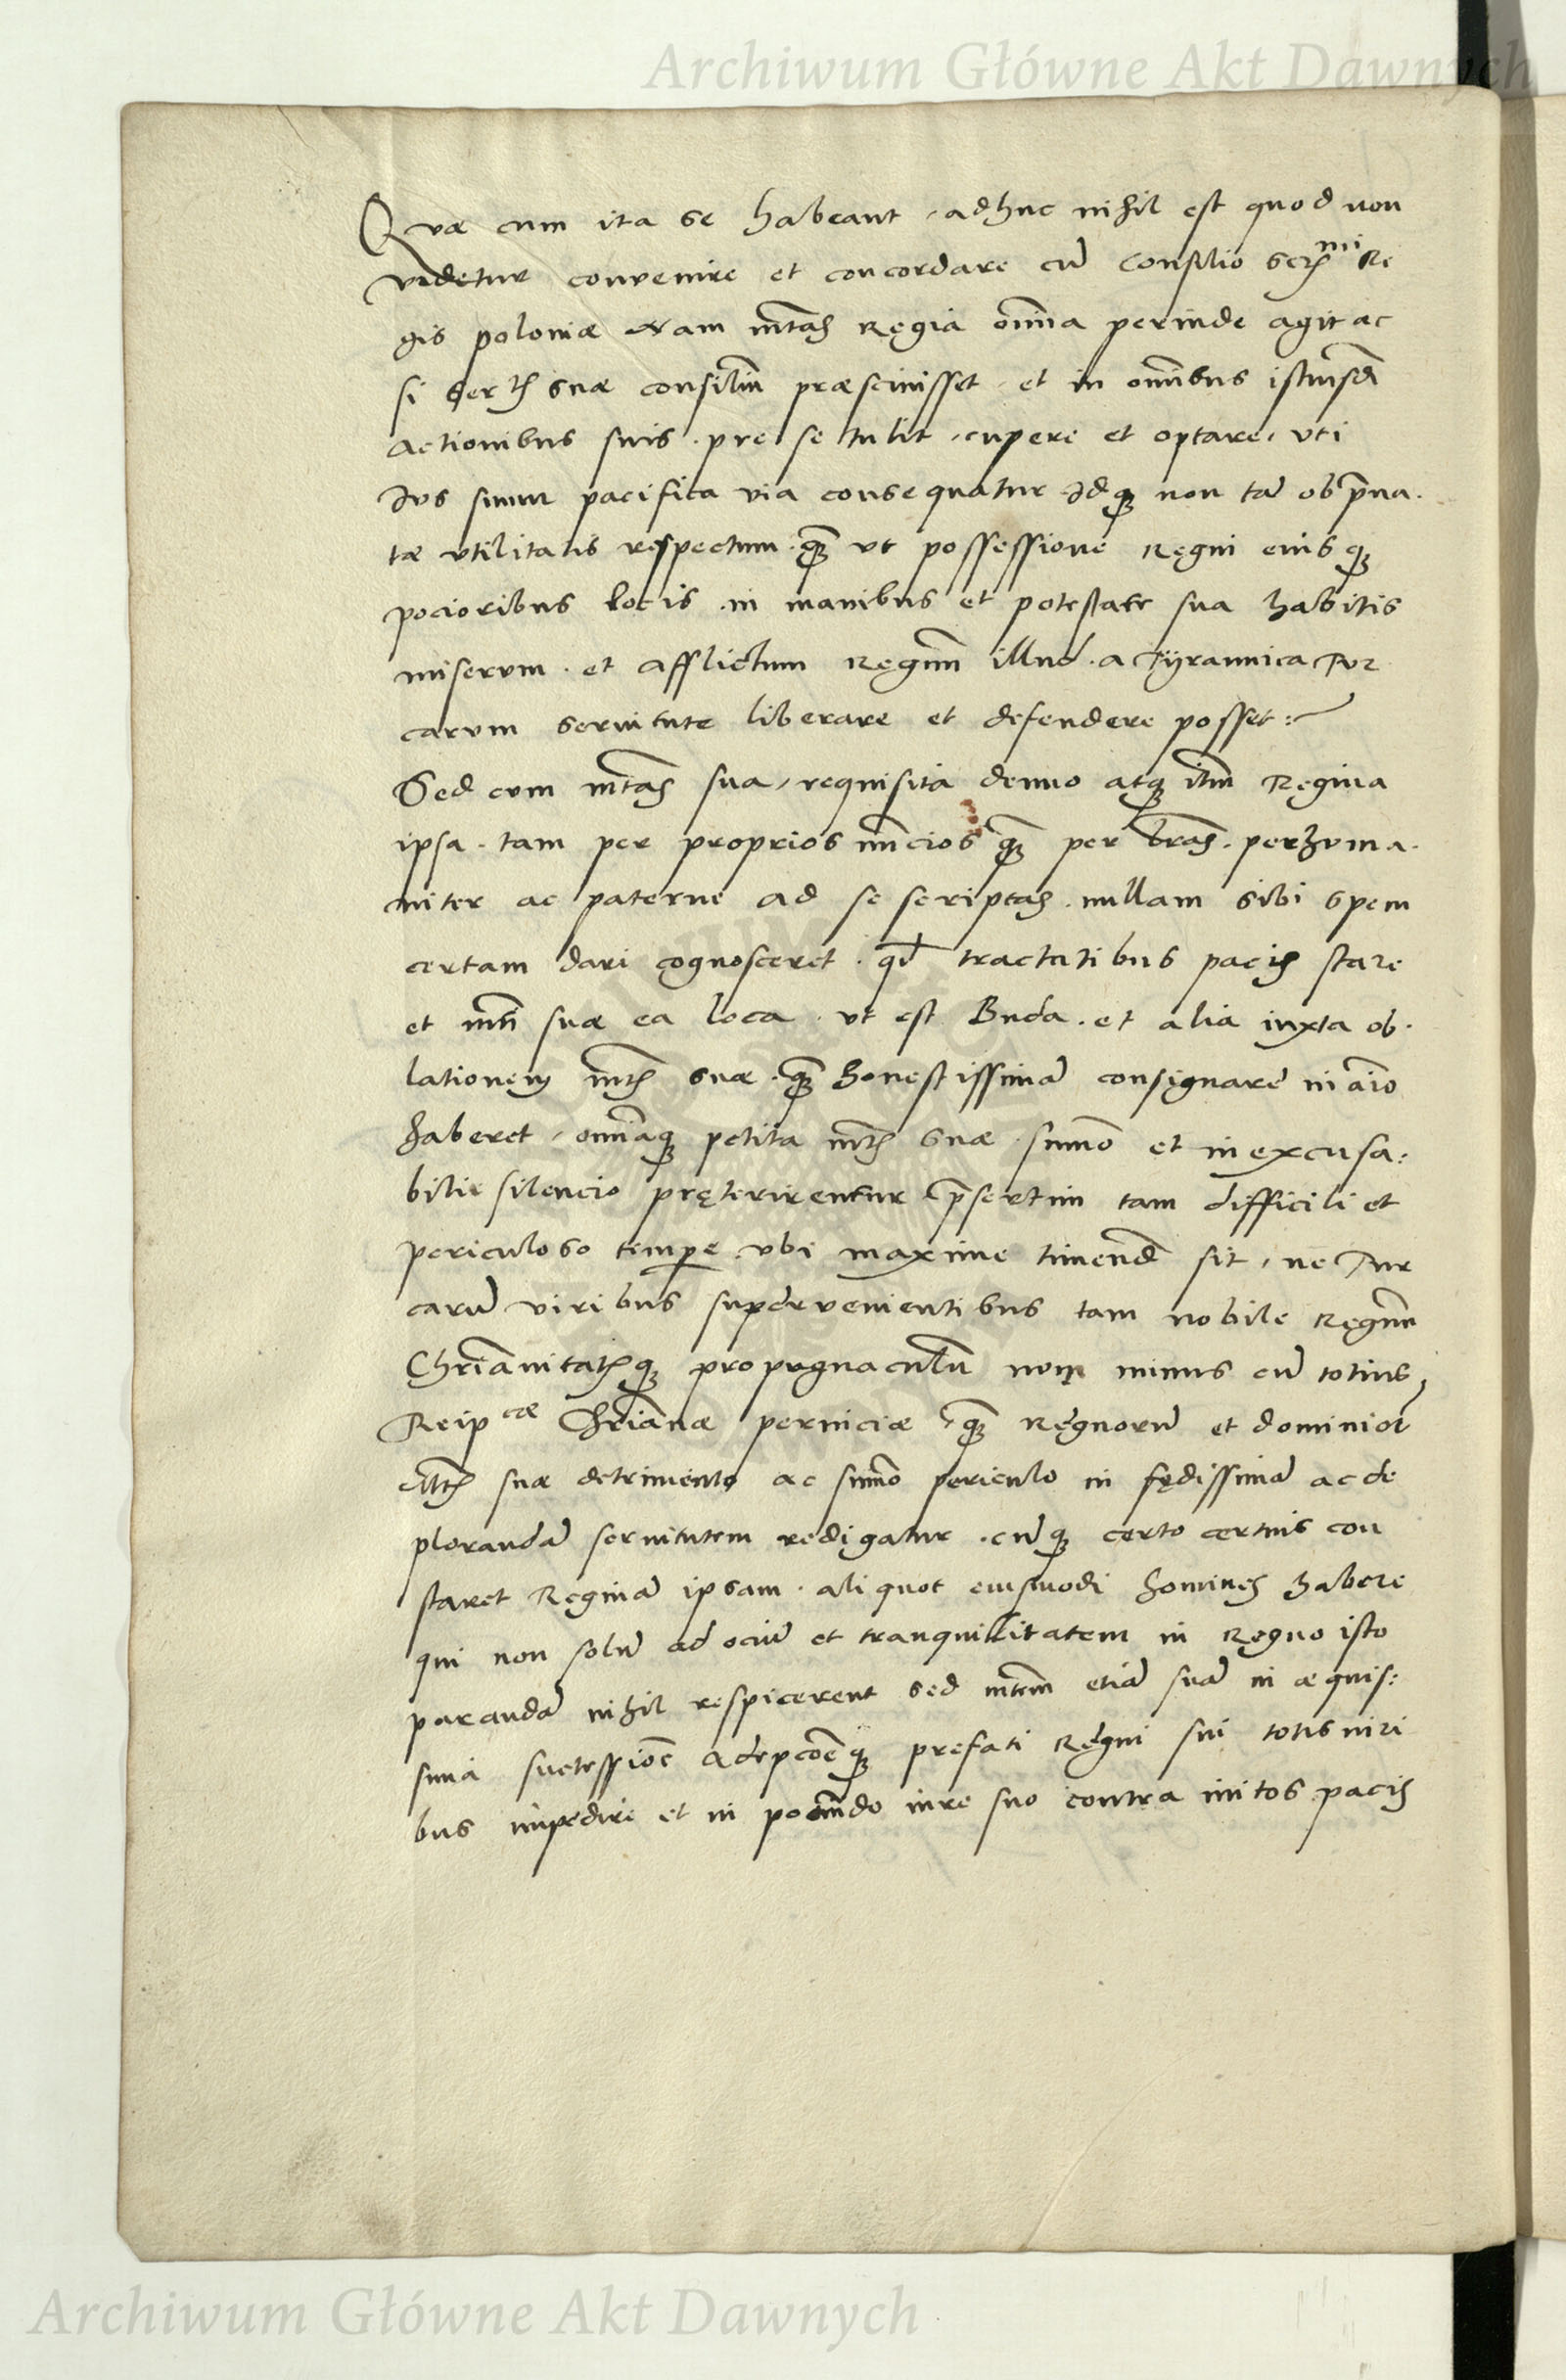 Archiwum Główne Akt Dawnych
Quae cum ita se habeant, adhuc nihil est quod non
videtur convenire et concordare cū Consilio serᵐⁱ Re
gis poloniae Nam mtas Regia omīa perinde agit ac
si sertis suae consiliū praescivisset. et in omnibus istiusdē
actionibus suis. pre se tulit, cupere et optare, uti
Ius suum pacifica via consequatur Idq; non tā ob priva.
tae utilitatis respectum. q̄ ut possessione Regni eiusq;
pocioribus locis. in manibus et potestate sua habitis
miserum. et afflictum Regnū illud. a Tyrannica Tur
carum servitute liberare et defendere posset:
Sed cum mtas sua, requisita denuo atq; itm Regina
ipsa. tam per proprios nūcios q̄ per lras. perhuma.
niter ac paterne ad se scriptas. nullam sibi spem
certam dari cognosceret. qd tractatibus pacis stare
et mti suae ea loca. ut est Buda. et alia iuxta ob.
lationem mtis suae. q̄ honestissimā consignare in aīo
haberet, omīaq; petita mtis suae. summo et inexcusa:
bili silencio pręterirentur p̄sertim tam difficili et
periculoso tempe. ubi maxime timendū sit, ne Tur
carū viribus supervenientibus tam nobile Regnū
Chriānitatisq; propugnaculū non minus cū totius
Reipᶜᵃᵉ Chriānae perniciae, q̄ Regnorū et dominior
Mtis suae detrimento ac summo periculo in fędissimā ac de
plorandā servitutem redigatur. cūq; certo certius con
staret Reginā ipsam. aliquot eiusmodi homines habere
qui non solū ad ociū et tranquillitatem in Regno isto
parandā nihil respicerent sed mtem etiā suā in aequis:
sima successiōe adepcōeq; prefati Regni sui totis viri
bus impedire et in pociūdo iure suo contra initos pacis
Archiwum Główne Akt Dawnych